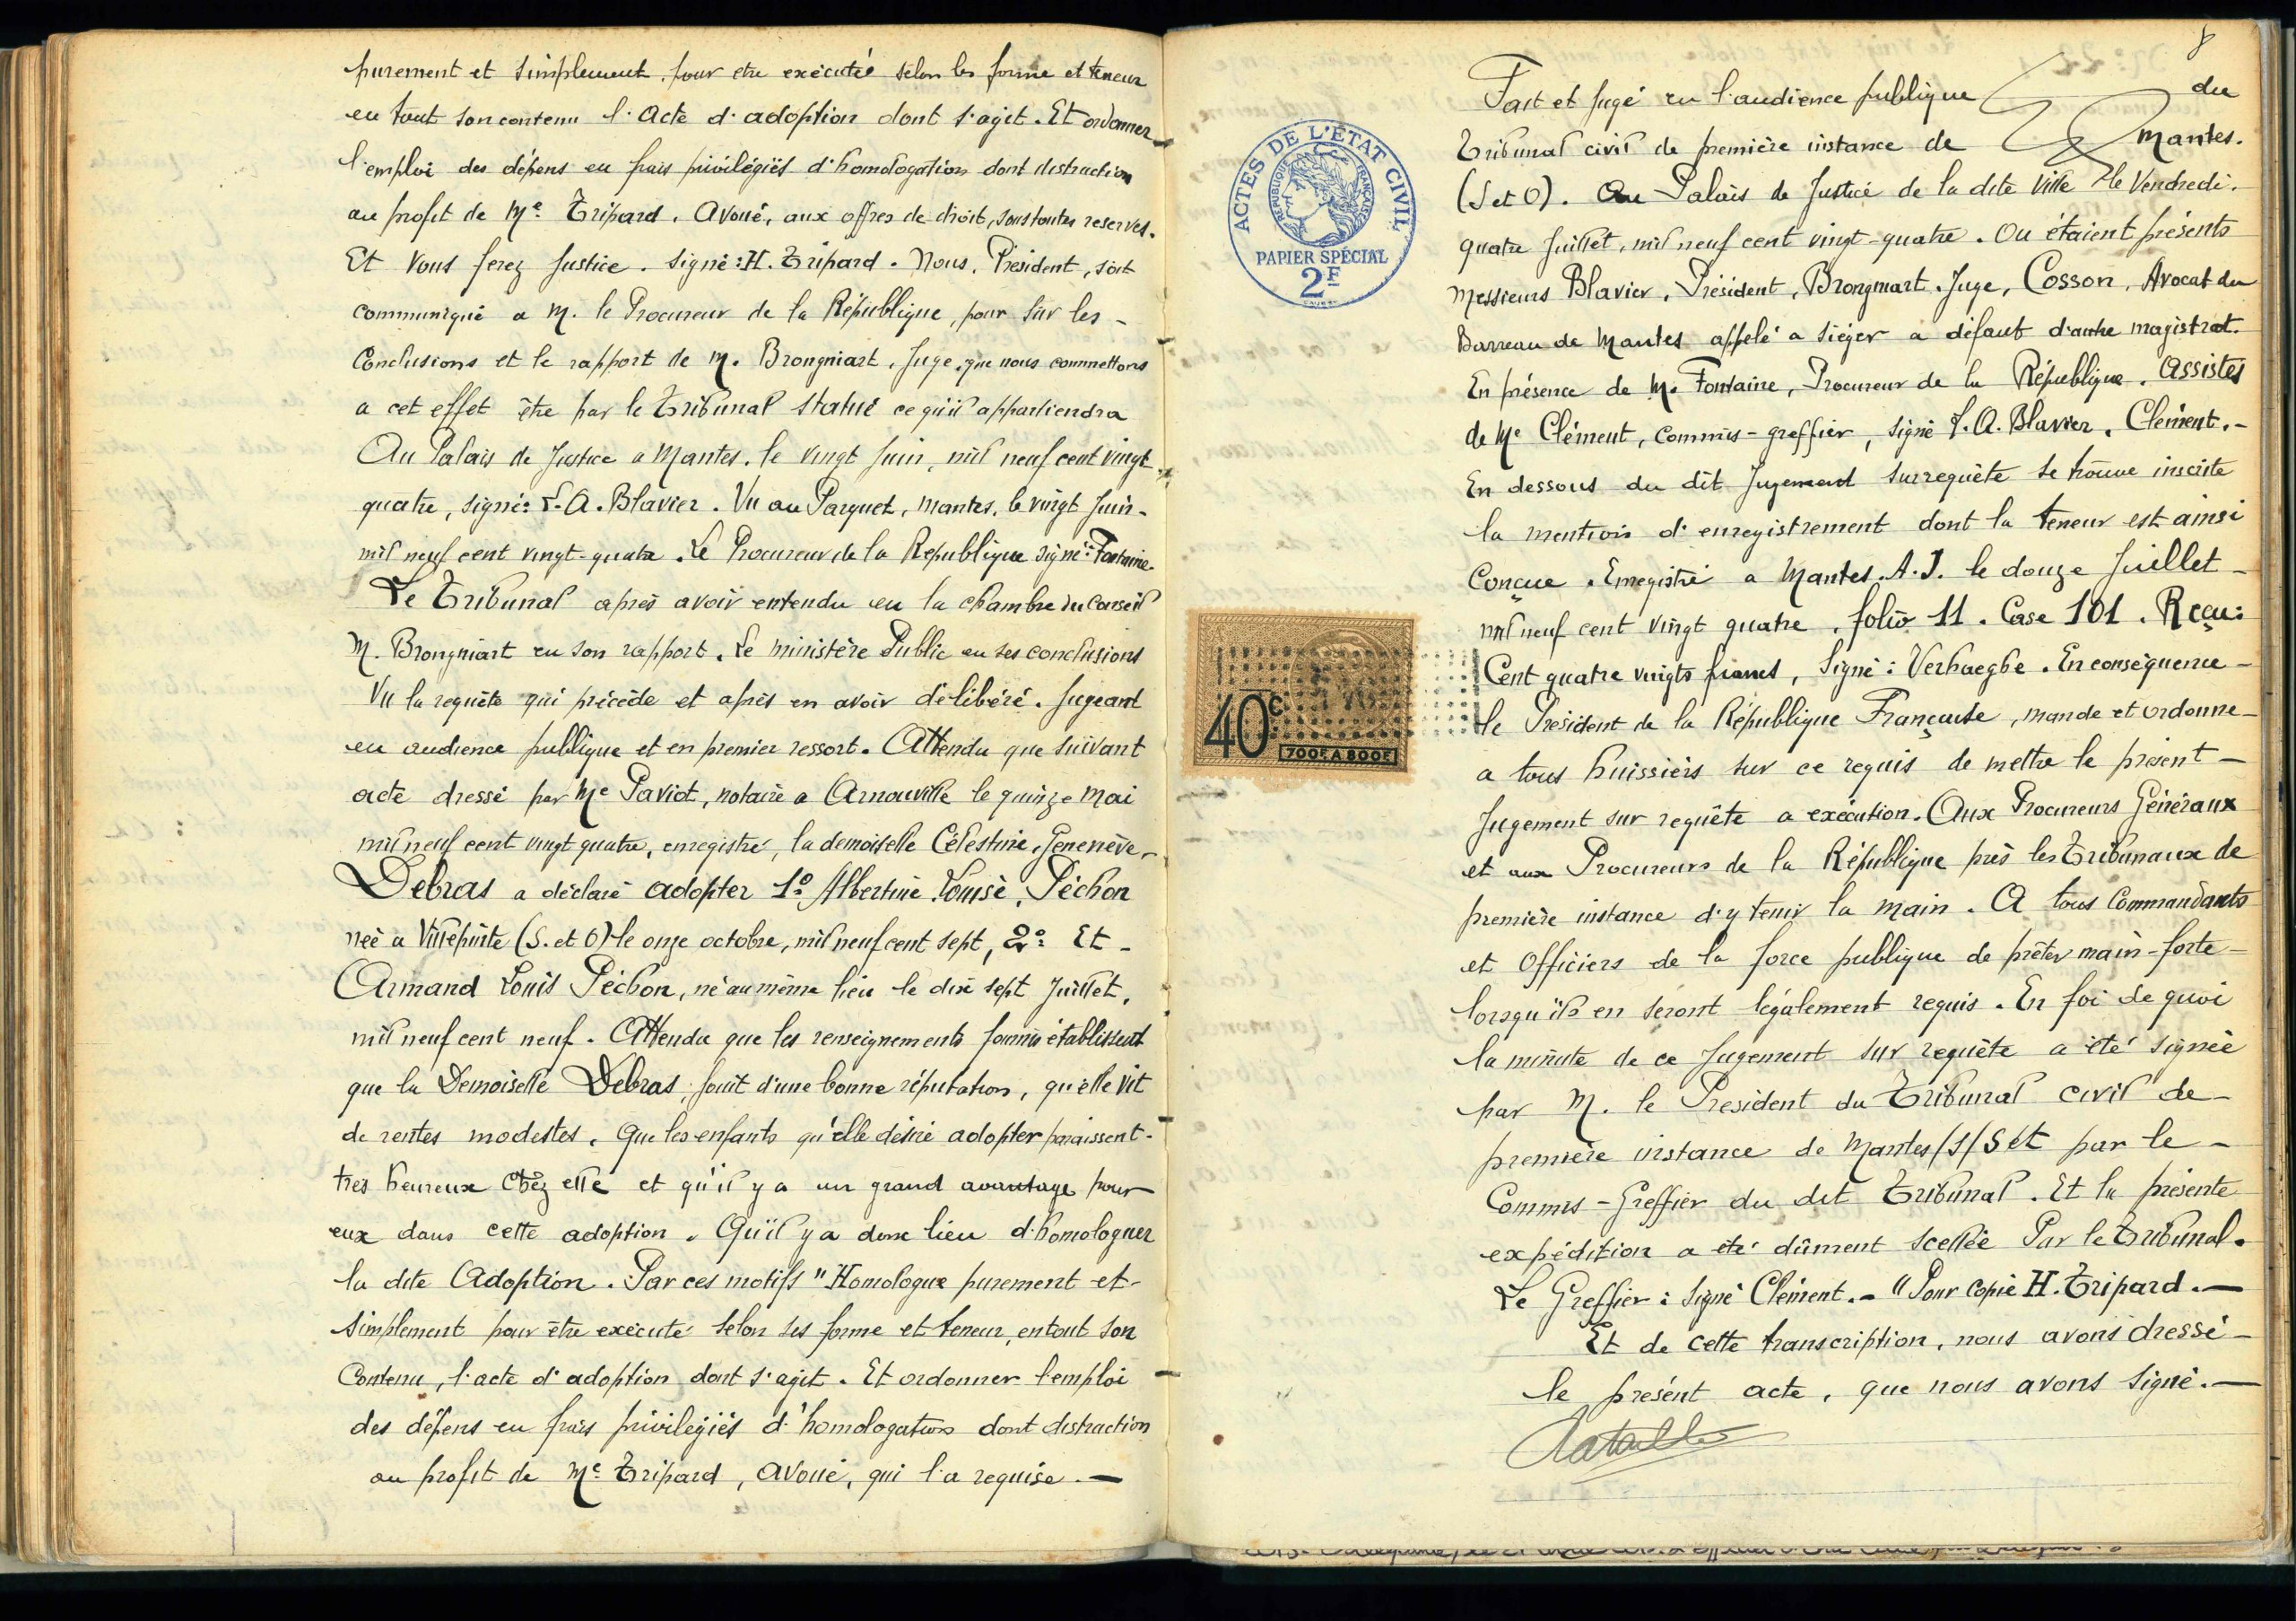 purement et simplement pour etre exécutée selon les forme et teneur
en tout son contenu l'acte d'adoption dont s'agit. Et ordonner
l'emploi des dépens en frais privilégiés d'homologation dont distraction
au profit de Me Tripard, Avoué, aux offres de droit, sous toutes reserves.
Et vous ferez Justice. Signé: H. Tripard. Nous, Président, soit
communiqué a M. le Procureur de la République, pour sur les -
Conclusions et le rapport de M. Brongniart, Juge, que nous commettons
a cet effet être par le Tribunal statué ce qu'il appartiendra
Au Palais de Justice a Mantes, le vingt Juin, mil neuf cent vingt
quatre, signé: L.A. Blavier. Vu au Parquet, Mantes, le vingt Juin -
mil neuf cent vingt-quatre. Le Procureur de la République signé: Fontaine.
Le Tribunal après avoir entendu en la chambre du Conseil
M. Brongniart en son rapport. Le ministère Public en ses conclusions
Vu la requête qui précède et après en avoir délibéré. Jugeant
en audience publique et en premier ressort. Attendu que suivant
acte dressé par Me Paviot, notaire a Arnouville le quinze Mai
mil neuf cent vingt quatre, enregistré, la demoiselle Célestine, Geneviève -
Debras a déclaré adopter 1° Albertine Louise, Péchon
née a Villepinte (S. et O) le onze octobre, mil neuf cent sept, 2° Et -
Armand Louis Péchon, né au même lieu le dix sept Juillet,
mil neuf cent neuf. Attendu que les renseignements fournis établissent
que la Demoiselle Debras, jouit d'une bonne réputation, qu'elle vit
de rentes modestes. Que les enfants qu'elle désire adopter paraissent -
très heureux chez elle et qu'il y a un grand avantage pour
eux dans cette adoption. Qu'il y a donc lieu d'homologuer
la dite Adoption. Par ces motifs "Homologue purement et -
simplement pour être exécuté selon ses forme et teneur, en tout son
Contenu, l'acte d'adoption dont s'agit. Et ordonner l'emploi
des dépens en frais privilégiés d'homologation dont distraction
au profit de Me Tripard, Avoué, qui l'a requise. —
8
Fait et Jugé en l'audience publique du
Tribunal civil de première instance de Mantes.
(S et O). Au Palais de Justice de la dite Ville le Vendredi.
quatre Juillet, mil neuf cent vingt-quatre. Où étaient présents
Messieurs Blavier, Président, Brongniart, Juge, Cosson, Avocat du
Barreau de Mantes appelé a siéger a défaut d'autre magistrat.
En présence de M. Fontaine, Procureur de la République. Assistés
de Me Clément, Commis-greffier, signé L.A. Blavier, Clément. -
En dessous du dit Jugement sur requête se trouve inscrite
la mention d'enregistrement dont la teneur est ainsi
Conçue. Enregistré a Mantes. A.J. le douze Juillet -
mil neuf cent vingt quatre, folio 11. Case 101. Reçu:
Cent quatre vingts francs, Signé: Verhaeghe. En conséquence -
le Président de la République Française, mande et ordonne -
a tous huissiers sur ce requis de mettre le présent -
Jugement sur requête a exécution. Aux Procureurs Généraux
et aux Procureurs de la République près les Tribunaux de
première instance d'y tenir la main. A tous Commandants
et Officiers de la force publique de prêter main-forte -
lorsqu'ils en seront légalement requis. En foi de quoi
la minute de ce Jugement sur requête a été signée
par M. le Président du Tribunal civil de -
première instance de Mantes/s/S et par le -
Commis-Greffier du dit Tribunal. Et la présente
expédition a été dûment scellée Par le Tribunal.
Le Greffier: signé Clément. - "Pour copie H. Tripard. —
Et de cette transcription, nous avons dressé -
le présent acte, que nous avons signé. —
ACTES DE L'ÉTAT CIVIL
RÉPUBLIQUE FRANÇAISE
PAPIER SPÉCIAL
2F
40c
700F A 800F